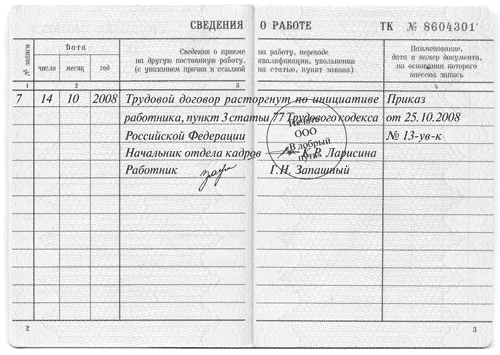 СВЕДЕНИЯ О РАБОТЕ ТК № 8604301
№ записи
Дата
число месяц год
Сведения о приеме на работу, переводе
на другую постоянную работу, квалификации, увольнении
(с указанием причин и ссылкой на статью, пункт закона)
Наименование,
дата и номер документа,
на основании которого
внесена запись
1 2 3 4
7 14 10 2008 Трудовой договор расторгнут по инициативе Приказ
работника, пункт 3 статьи 77 Трудового кодекса от 25.10.2008
Российской Федерации № 13-ув-к
Начальник отдела кадров К.Р. Ларисина
Работник Г.Н. Запашный
Печать
ООО
В добрый
путь
2 3